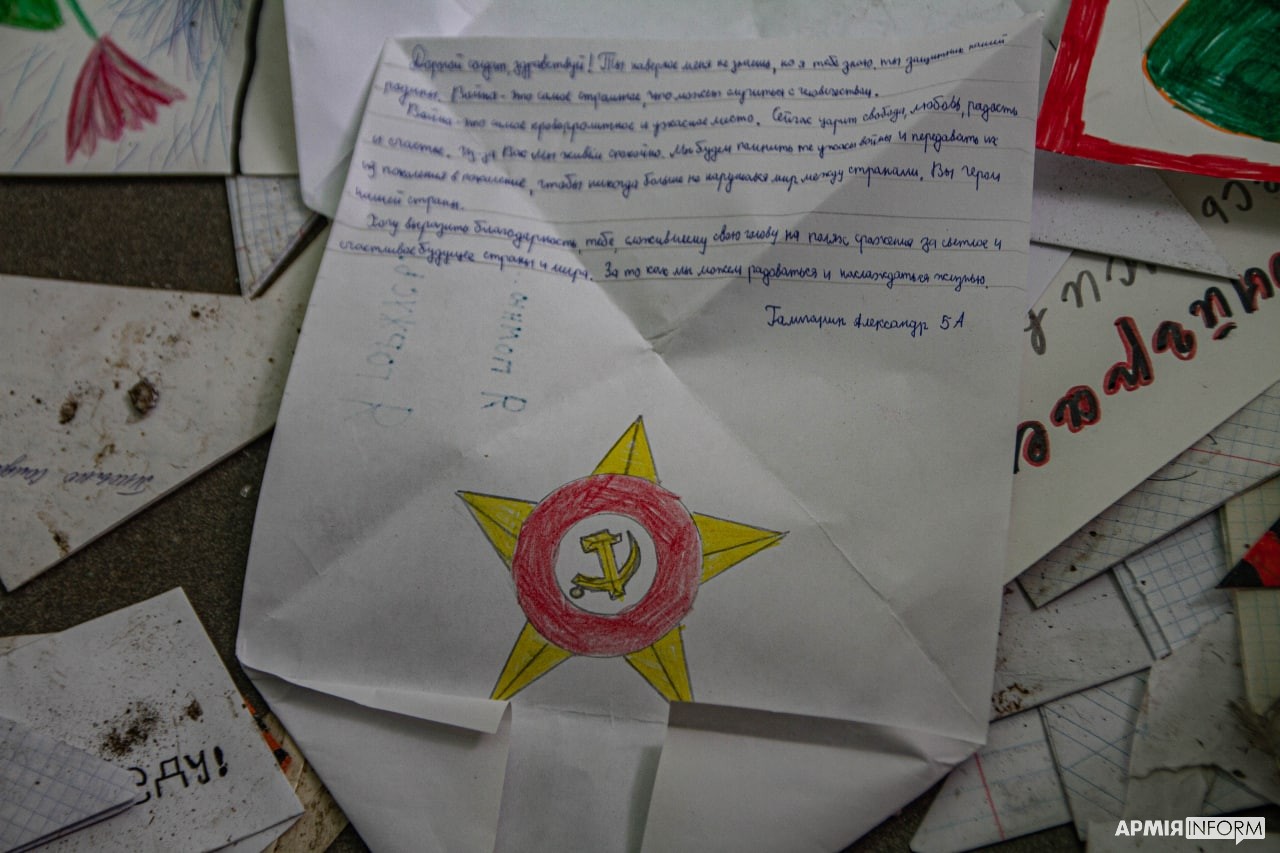 Дорогой солдат, здравствуй! Ты наверное меня не знаешь, но я тебя знаю. ты защитник нашей
родины. Война - это самое страшное, что может случиться с человечеством.
Война - это самое кровопролитное и ужасное место. Сейчас царит свобода, любовь, радость
и счастье. Из-за Вас мы живём спокойно. Мы будем помнить те ужасы войны и передавать их
из поколения в поколение, чтобы никогда больше не нарушался мир между странами. Вы герои
нашей страны.
Хочу выразить благодарность, тебе, сложившему свою голову на полях сражения за светлое и
счастливое будущее страны и мира. За то как мы можем радоваться и наслаждаться жизнью.
Александр 5 А
Я помню
Я
СДУ!
АРМІЯINFORM